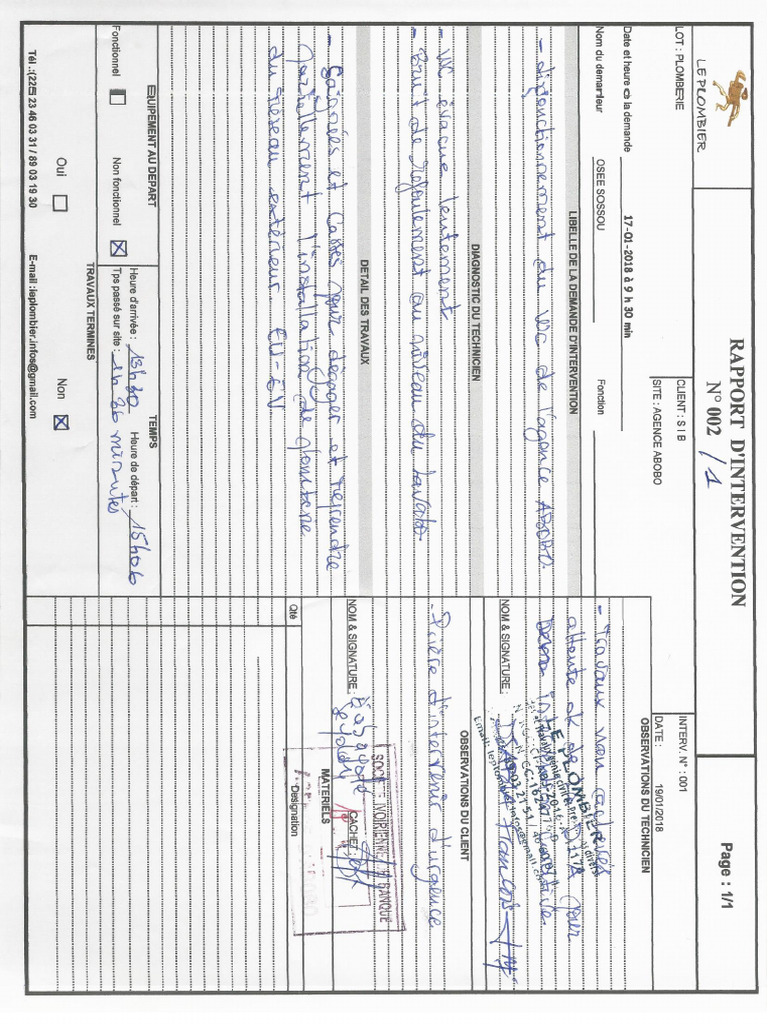 LE PLOMBIER
RAPPORT D'INTERVENTION
N° 002 / 1
Page : 1/1
LOT : PLOMBERIE
CLIENT : S I B
SITE : AGENCE ABOBO
INTERV. N° : 001
DATE : 19/01/2018
Date et heure de la demande 17-01-2018 à 9 h 30 min
Nom du demandeur OSEE SOSSOU Fonction
LIBELLE DE LA DEMANDE D'INTERVENTION
- disfonctionnement du WC de l'agence ABOBO.
DIAGNOSTIC DU TECHNICIEN
- WC évacue lentement
- Bruit de refoulement au niveau du lavabo.
DETAIL DES TRAVAUX
- Saignées et Casses pour dégager et reprendre
partiellement l'installation de plomberie
du réseau extérieur EU-EV
EQUIPEMENT AU DEPART
Fonctionnel ☐ Non fonctionnel ☒
TEMPS
Heure d'arrivée : 13h30 Heure de départ : 15h06
Tps passé sur site : 1h 36 minutes
TRAVAUX TERMINES
Oui ☐ Non ☒
Tél .:(225) 23 46 03 31 / 89 03 19 30 E-mail :leplombier.infos@gmail.com
OBSERVATIONS DU TECHNICIEN
- Travaux non achevés
attente ok de pour
LE PLOMBIER
NOM & SIGNATURE : François
OBSERVATIONS DU CLIENT
- Prière d'intervenir d'urgence
NOM & SIGNATURE :
CACHET :
SOCIETE IVOIRIENNE DE BANQUE
MATERIELS
Qté Designation